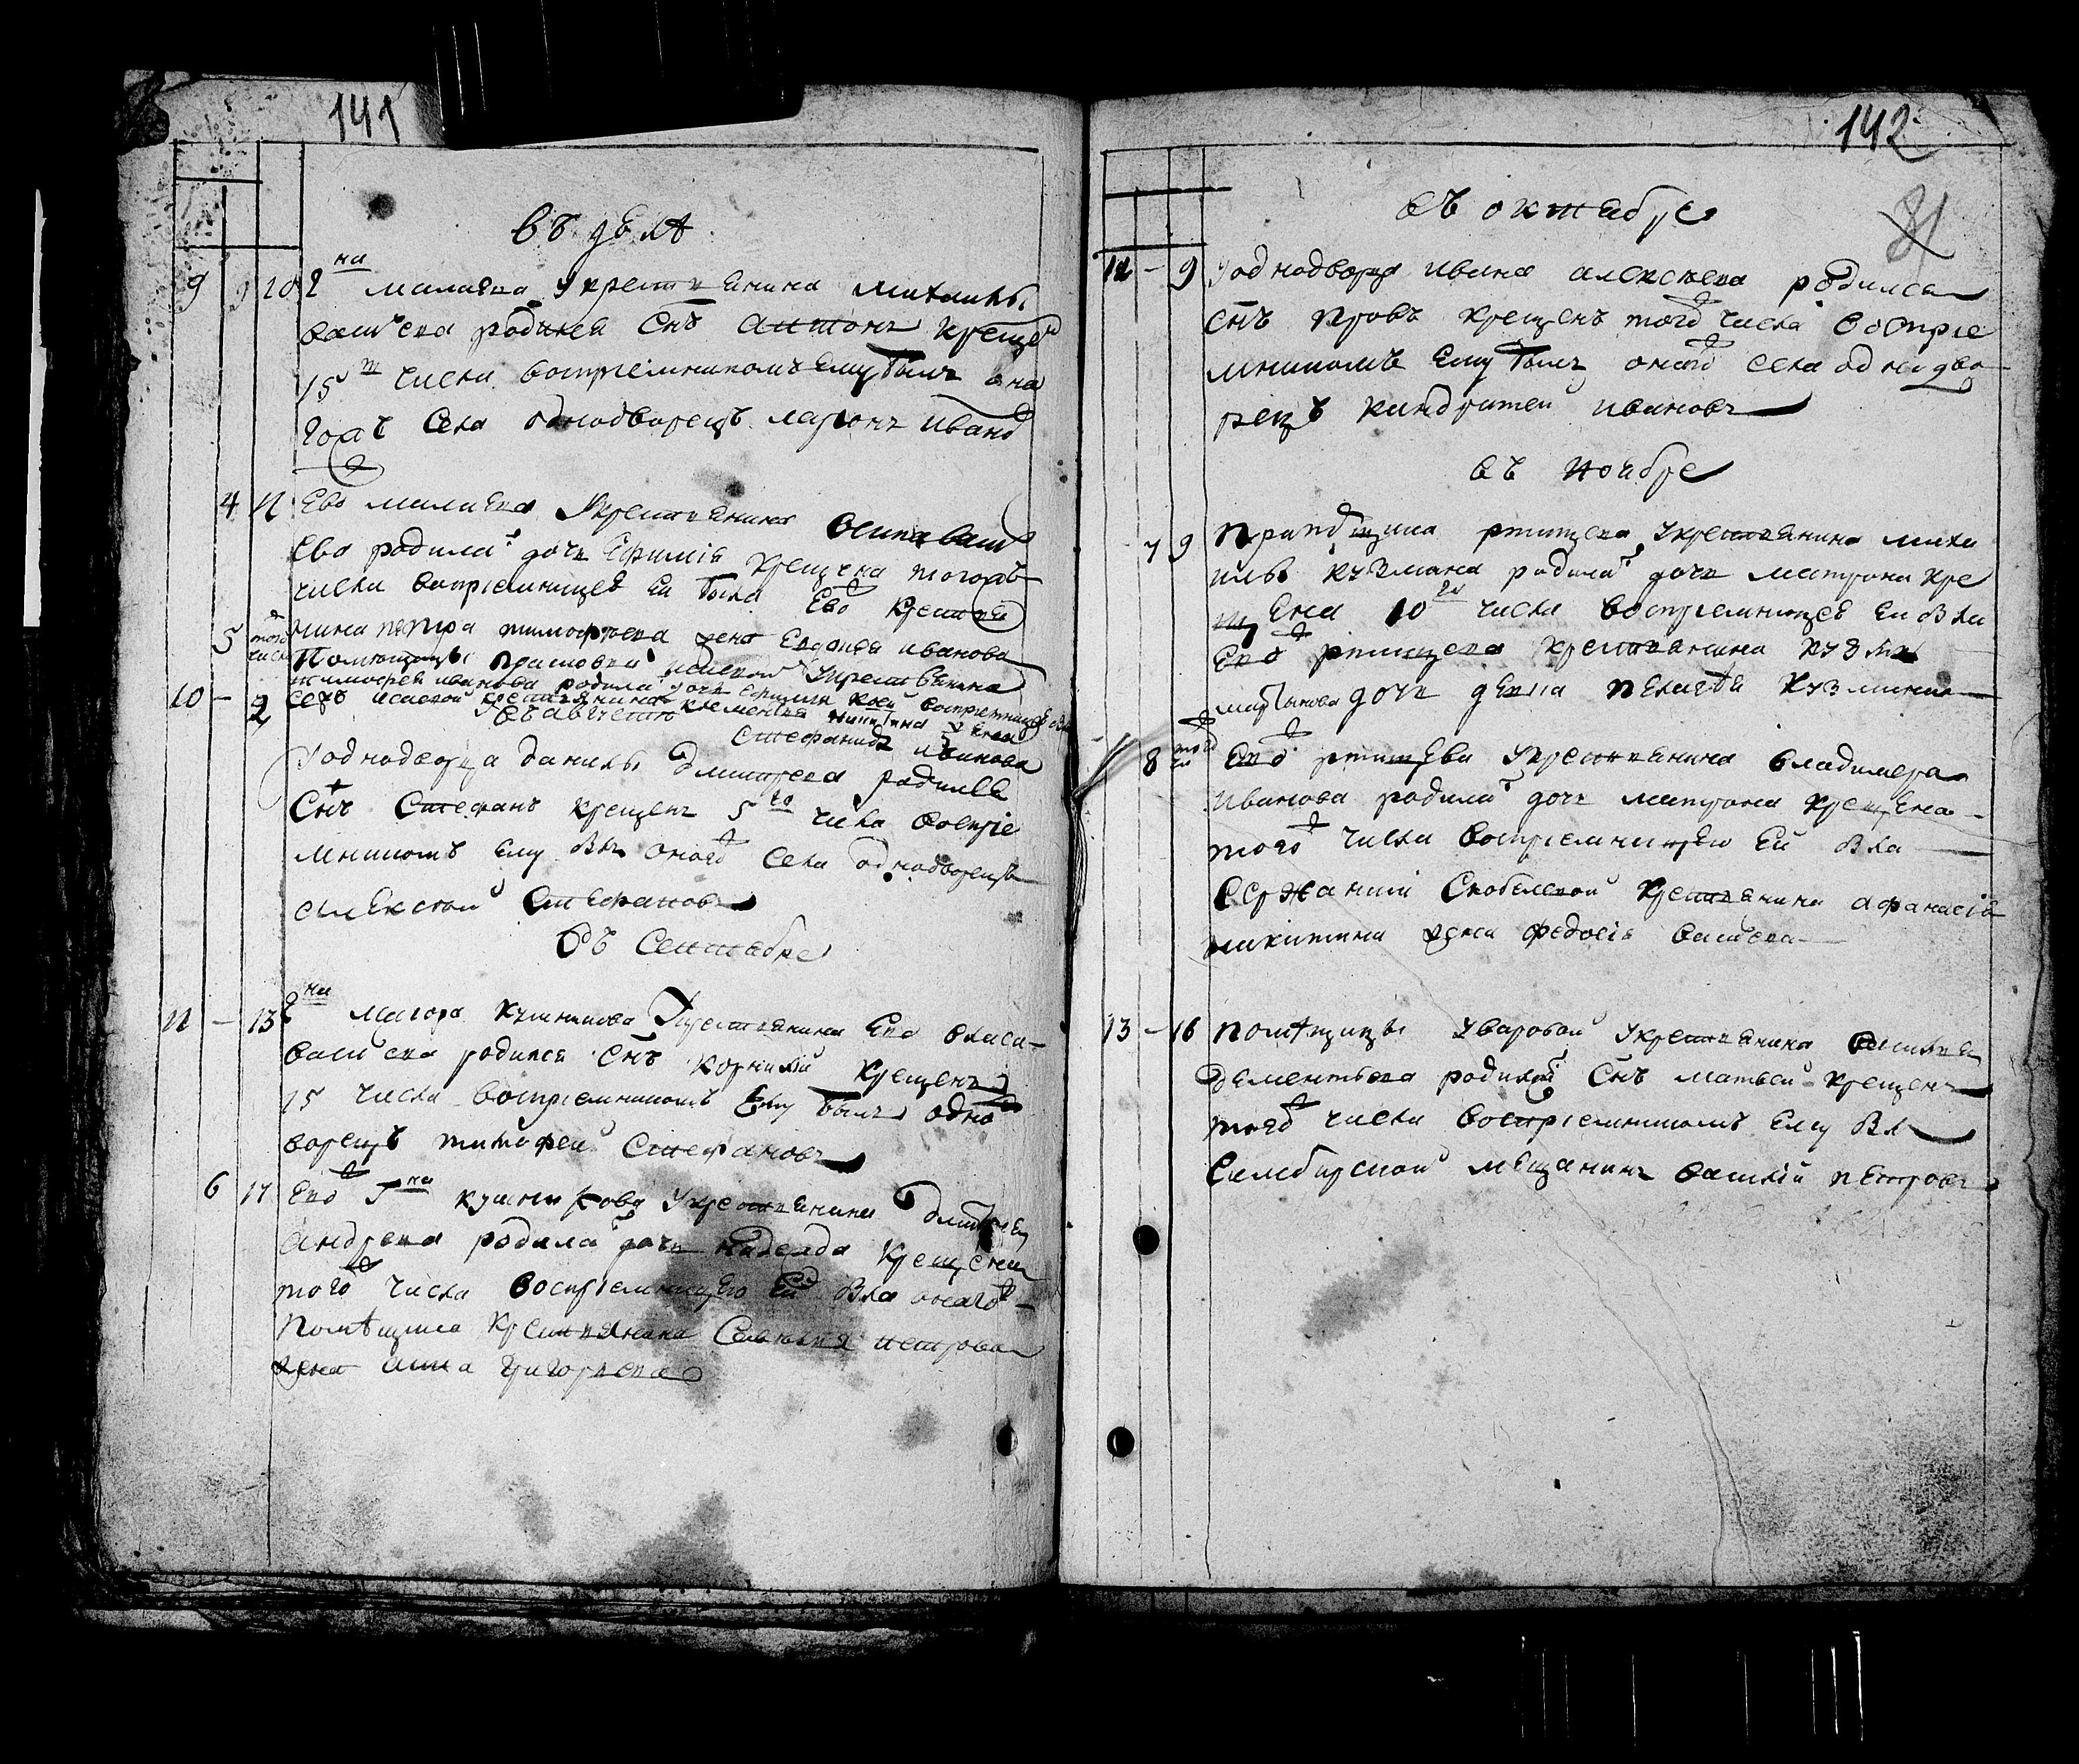 141
въ ꙇюлѣ
9 9 10 Гна малаева у крестьянина михаилы
васильева родился снъ антонъ крещенъ
15 числа воспріемникомъ ему былъ она
гожъ села однодворецъ ларионъ ивано
4 11 Ево малаева у крестьянина осипа васи
ева родилас дочь ефимія крещена тогожъ
числа воспріемницей ей была ево крестья
5 того числа нина петра тимофеева жена евдокея иванова
помещицы прасковьи исаевой у крестьянина
тимофея иванова родилас дочь ефимия коей воспріемницей вла
сехъ исаевой крестьянина клементья никитина жена
стефанида иванова
въ августе
10 - 2 у однодворца данилы дмитрева родилсе
снъ стефанъ крещенъ 5го числа воспріе
мникомъ ему влъ оного села однодворецъ
алексеи стефановъ
въ сентябре
11 - 13 Гна маиора кушникова у крестьянина ево власа
васильева родился снъ корнилий крещенъ
15 числа воспріемникомъ ему былъ одно
ворецъ тимофей стефановъ
6 17 ево Гна кушникова у крестьянина дмитрея
андреева родилас дочь надежда крещена
того числа воспріемницею ей вла оного
помѣщика крестьянина савелья петрова
жена анна григорьева
142
81
въ октябре
12 - 9 у однодворца ивана алексеева родился
снъ провъ крещенъ того числа воспріе
мникомъ ему былъ оного села однодво
рецъ кандратей ивановъ
въ ноябре
7 9 прапорщика ртищева у крестьянина михаи
илы кузмина родилас дочь матрона кре
щена 10го числа воспріемницей ей вла
ево ртищева крестьянина кузмы
мартынова дочь девка пелагея кузмина
8 того чи ево ртищева у крестьянина владимера
иванова родилас дочь матрона крещена
того числа воспріемницею ей вла
сержанши скобелевой крестьянина афанасія
никитина жена федосія васильева
13 - 16 помѣщицы уваровой у крестьянина василья
дементьева родился снъ матвей крещенъ
того числа воспріемникомъ ему влъ
симбирской мещанинъ василий петровъ